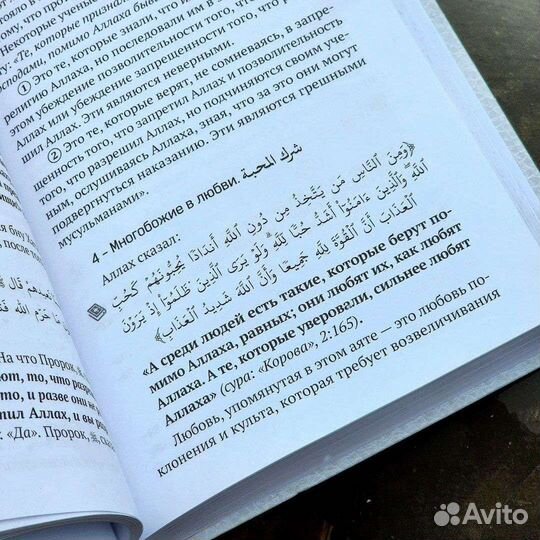 Некоторые учены
ку: «Те, которые призна
господами, помимо Аллаха быва
① Это те, которые знали, что н
религию Аллаха, но последовали им в
этом убеждение позволительности того, что запре
Аллах или убеждение запрещенности того, что разре
шил Аллах. Эти являются неверными.
② Это те, которые верят, не сомневаясь, в запре
щенность того, что запретил Аллах и позволительность
того, что разрешил Аллах, но подчиняются своим уче
ным, ослушиваясь Аллаха, зная, что за это они могут
подвергнуться наказанию. Эти являются грешными
мусульманами».
4 – Многобожие в любви. شرك المحبة
Аллах сказал:
﴿وَمِنَ النَّاسِ مَن يَتَّخِذُ مِن دُونِ اللَّهِ أَندَادًا يُحِبُّونَهُمْ كَحُبِّ
اللَّهِ وَالَّذِينَ ءَامَنُوٓا أَشَدُّ حُبًّا لِّلَّهِ وَلَوْ يَرَى الَّذِينَ ظَلَمُوٓا إِذْ يَرَوْنَ
الْعَذَابَ أَنَّ الْقُوَّةَ لِلَّهِ جَمِيعًا وَأَنَّ اللَّهَ شَدِيدُ الْعَذَابِ﴾
«А среди людей есть такие, которые берут по-
мимо Аллаха, равных; они любят их, как любят
Аллаха. А те, которые уверовали, сильнее любят
Аллаха» (сура: «Корова», 2:165).
Любовь, упомянутая в этом аяте — это любовь по-
клонения и культа, которая требует возвеличивания
На что Пророк, ﷺ,
ют, то, что разре
то, и разве они не
тил Аллах, и вы
«Да». Пророк, ﷺ, ск
Avito